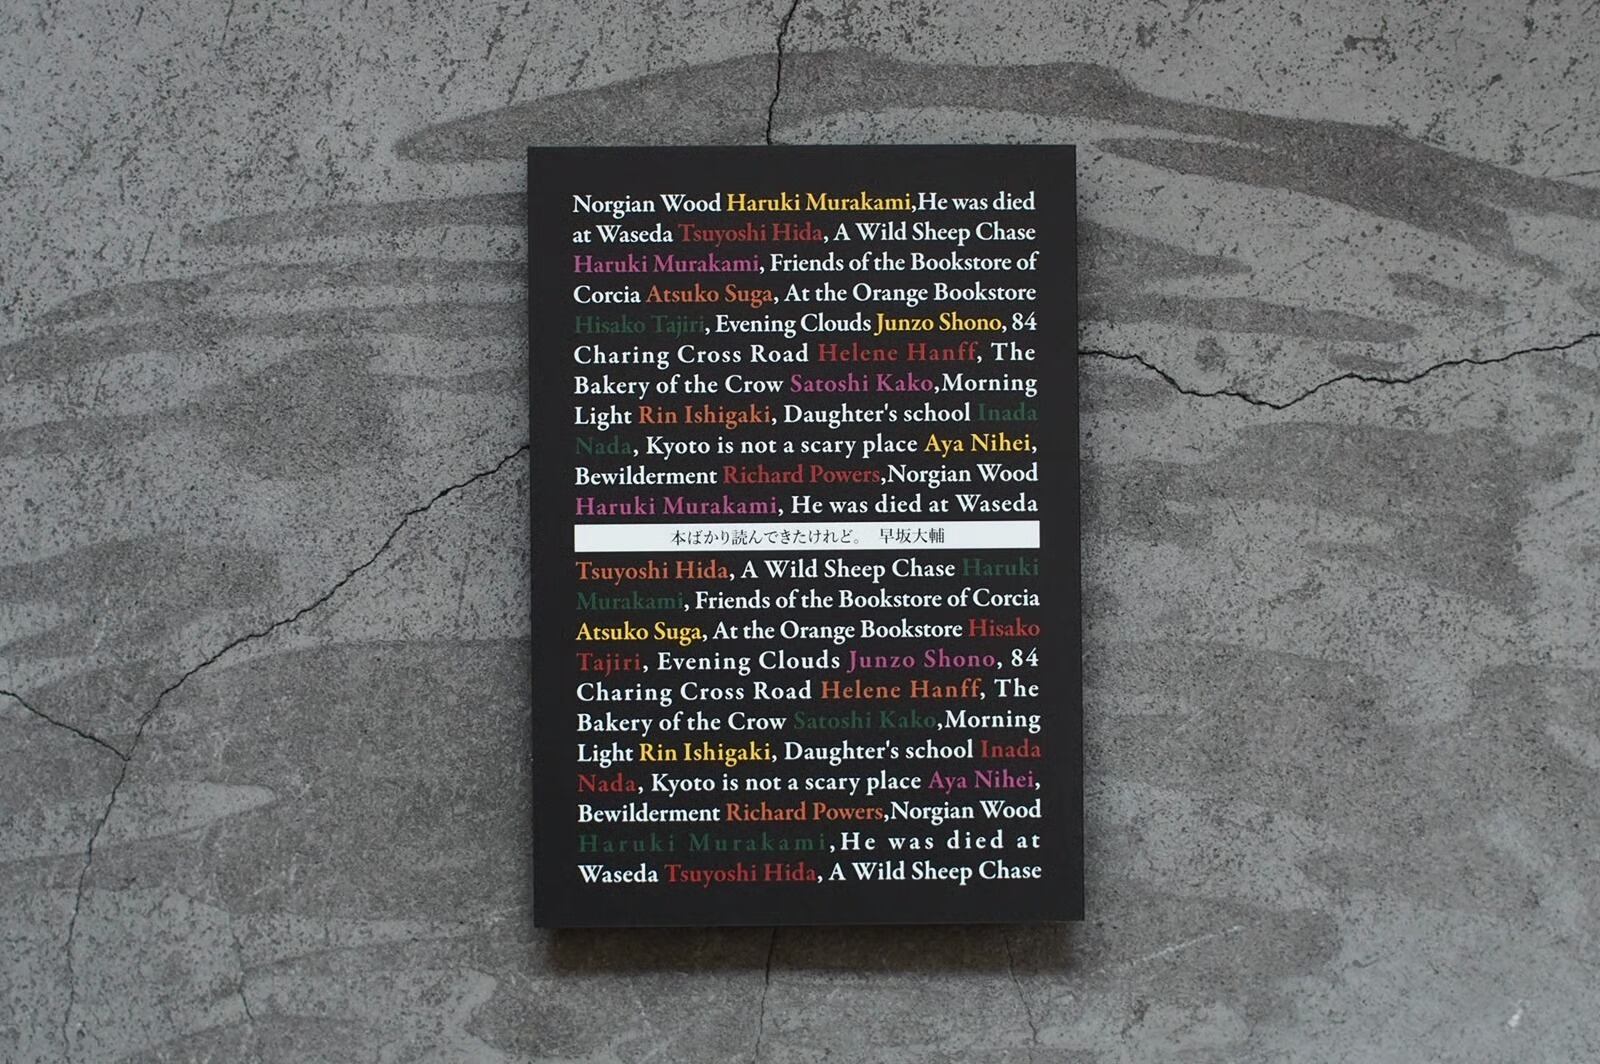 Norgian Wood Haruki Murakami,He was died
at Waseda Tsuyoshi Hida, A Wild Sheep Chase
Haruki Murakami, Friends of the Bookstore of
Corcia Atsuko Suga, At the Orange Bookstore
Hisako Tajiri, Evening Clouds Junzo Shono, 84
Charing Cross Road Helene Hanff, The
Bakery of the Crow Satoshi Kako,Morning
Light Rin Ishigaki, Daughter's school Inada
Nada, Kyoto is not a scary place Aya Nihei,
Bewilderment Richard Powers,Norgian Wood
Haruki Murakami, He was died at Waseda
本ばかり読んできたけれど。 早坂大輔
Tsuyoshi Hida, A Wild Sheep Chase Haruki
Murakami, Friends of the Bookstore of Corcia
Atsuko Suga, At the Orange Bookstore Hisako
Tajiri, Evening Clouds Junzo Shono, 84
Charing Cross Road Helene Hanff, The
Bakery of the Crow Satoshi Kako,Morning
Light Rin Ishigaki, Daughter's school Inada
Nada, Kyoto is not a scary place Aya Nihei,
Bewilderment Richard Powers,Norgian Wood
Haruki Murakami,He was died at
Waseda Tsuyoshi Hida, A Wild Sheep Chase